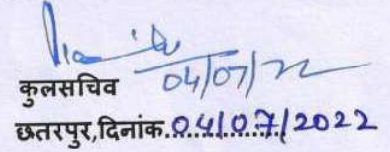 04/07/22
कुलसचिव
छतरपुर,दिनांक.04/07/2022